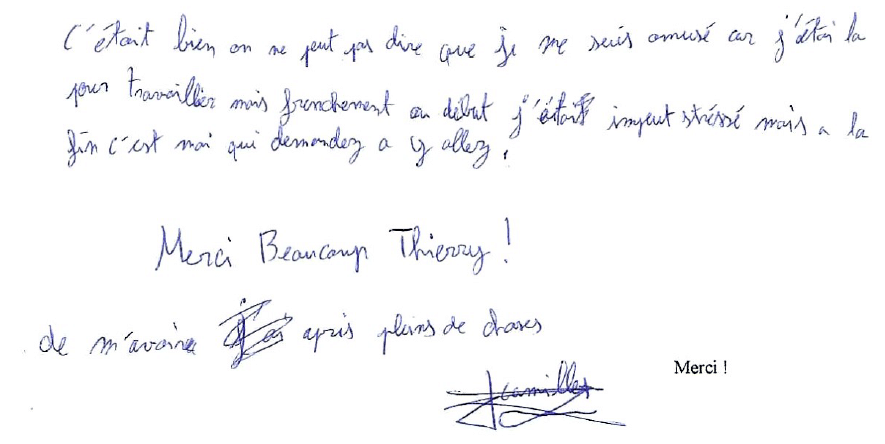 C'était bien on ne peut pas dire que je me suis amusé car j'étai la
pour travaillier mais franchement au début j'était impeut stréssé mais a la
fin c'est moi qui demandez a y allez.
Merci Beaucoup Thierry !
de m'avoire apris pleins de choses
Merci !
Camille